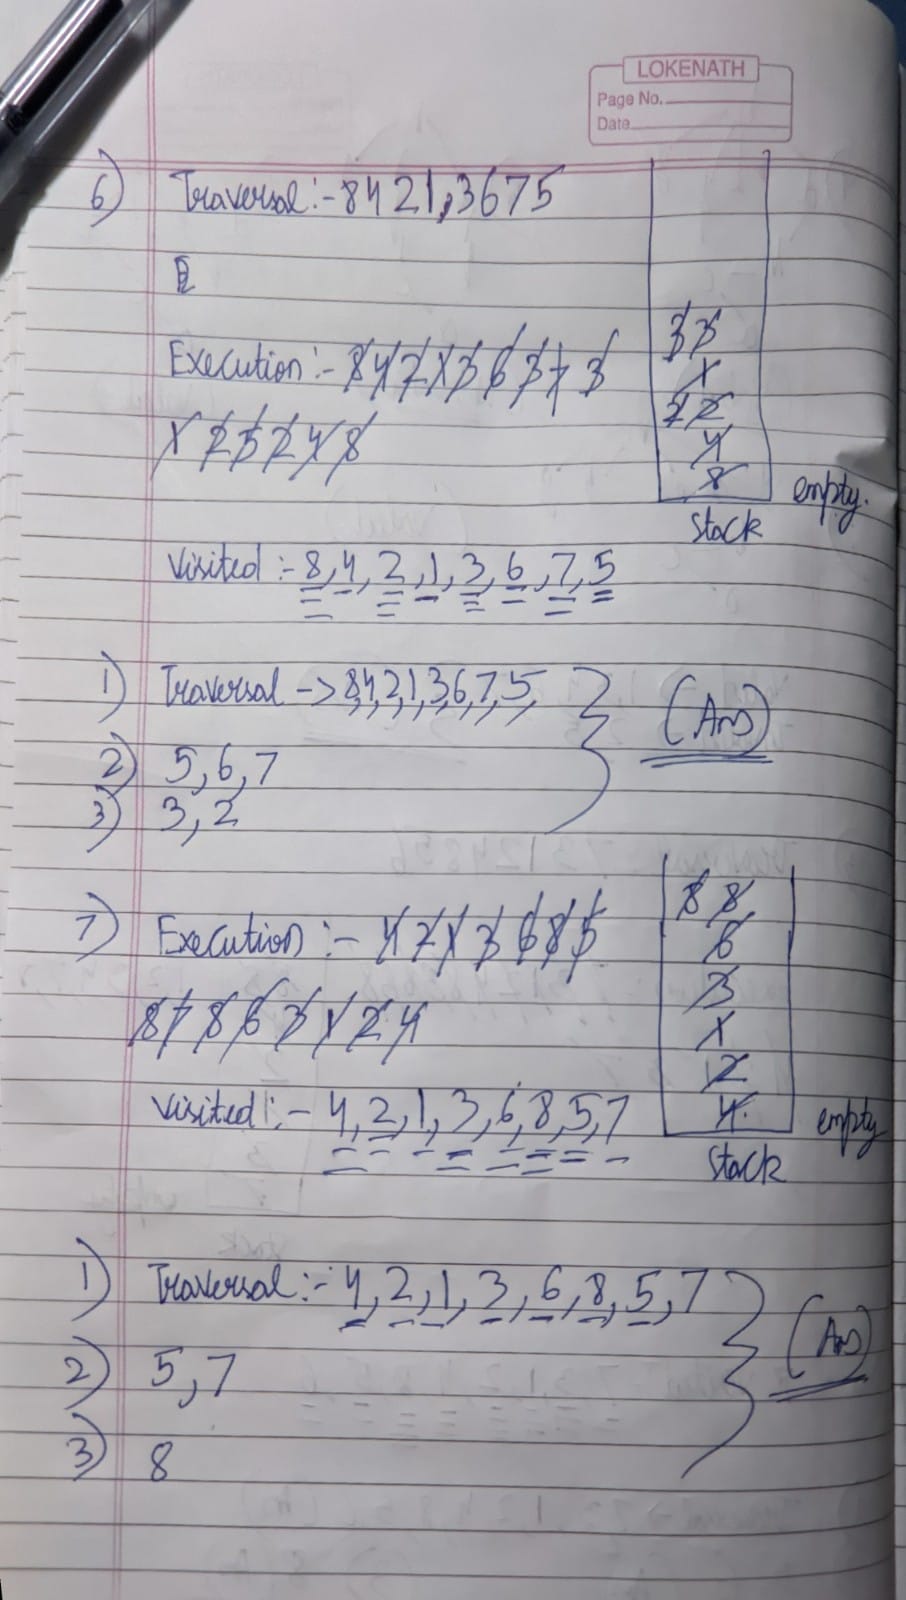 LOKENATH
Page No.
Date
6) Traversal :- 8421,3675
Execution :- 8 4 2 1 3 6 3 7 3
1 2 5 2 4 8
3 3
1
2 2
4
8
empty.
Stack
Visited :- 8, 4, 2, 1, 3, 6, 7, 5
1) Traversal -> 8,4,2,1,3,6,7,5,
(Ans)
2) 5, 6, 7
3) 3, 2
7) Execution :- 4 2 1 3 6 8 5
8 7 8 6 3 1 2 4
8 8
6
3
1
2
4
empty
Stack
Visited :- 4, 2, 1, 3, 6, 8, 5, 7
1) Traversal :- 4, 2, 1, 3, 6, 8, 5, 7
(Ans)
2) 5, 7
3) 8